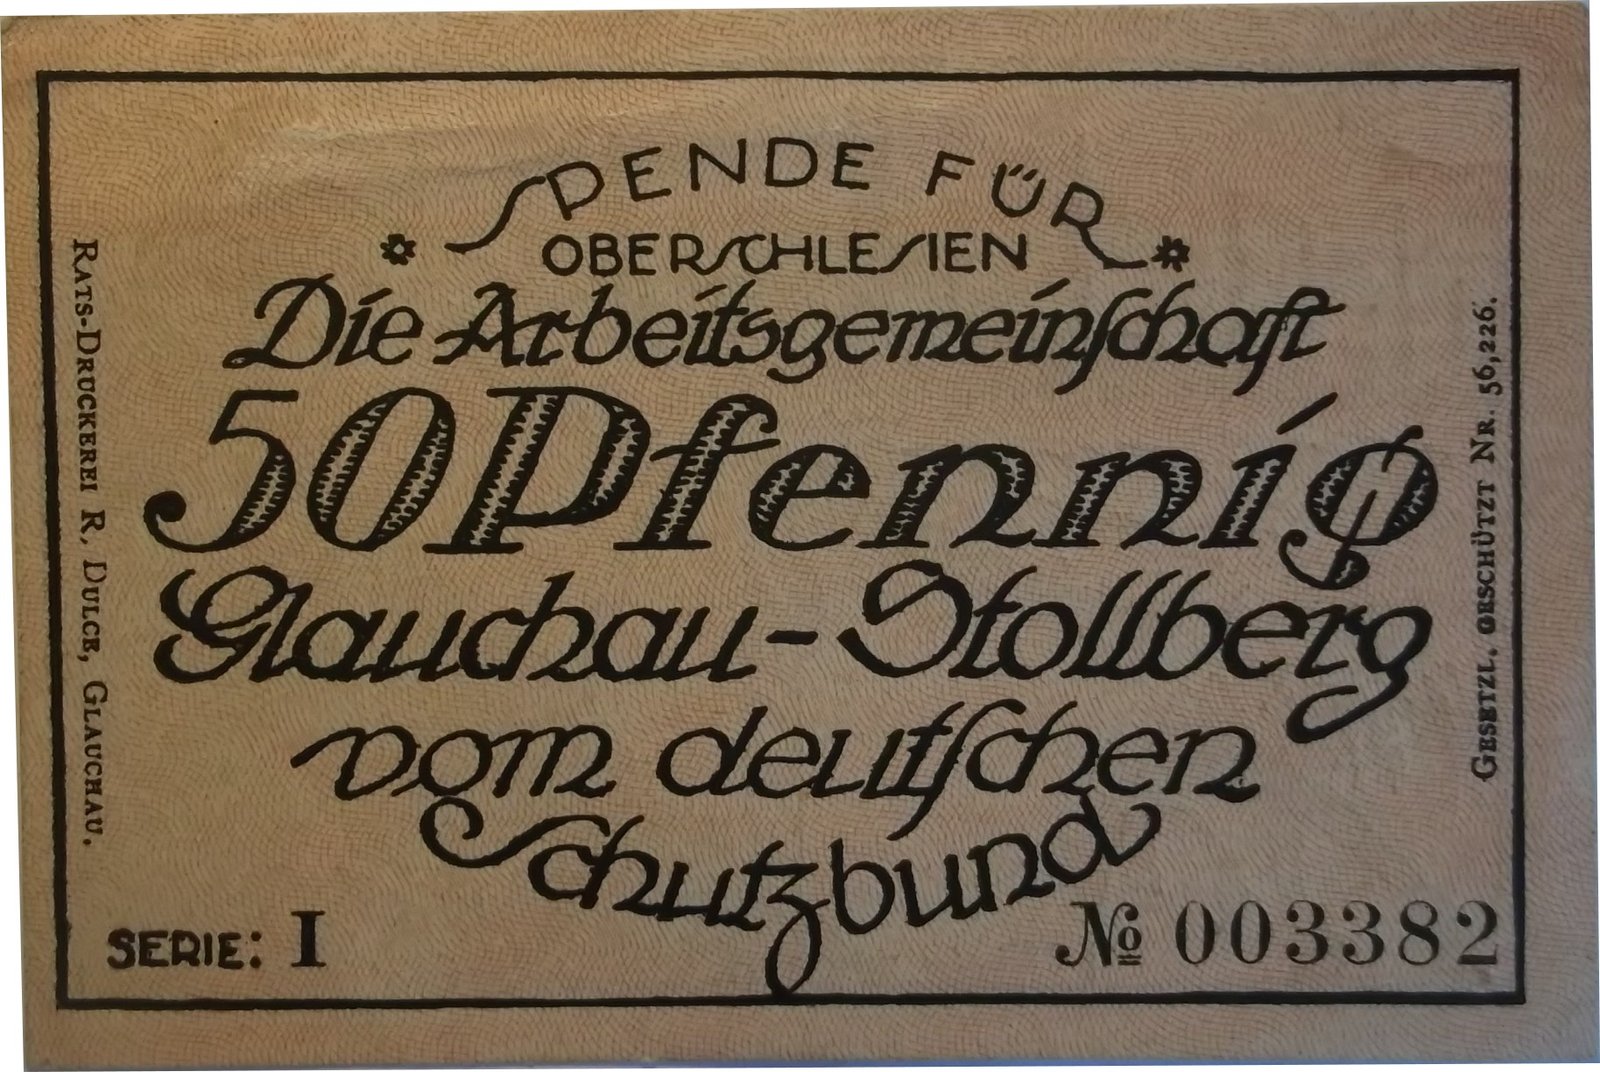 SPENDE FÜR
OBERSCHLESIEN
Die Arbeitsgemeinschaft
50 Pfennig
Glauchau-Stollberg
vom deutschen
Schutzbund
SERIE: I
№ 003382
RATS-DRUCKEREI R. DULCE, GLAUCHAU.
GESETZL. GESCHÜTZT NR. 56,226.